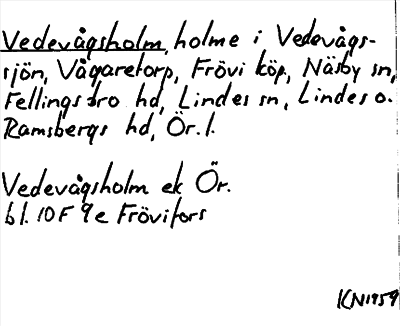 Vedevågsholm, holme i Vedevågs-
sjön, Vågaretorp, Frövi köp, Näsby sn,
Fellingsbro hd, Lindes sn, Lindes o.
Ramsbergs hd, Ör. l.
Vedevågsholm ek Ör.
bl. 10F 9e Frövifors
KN1959